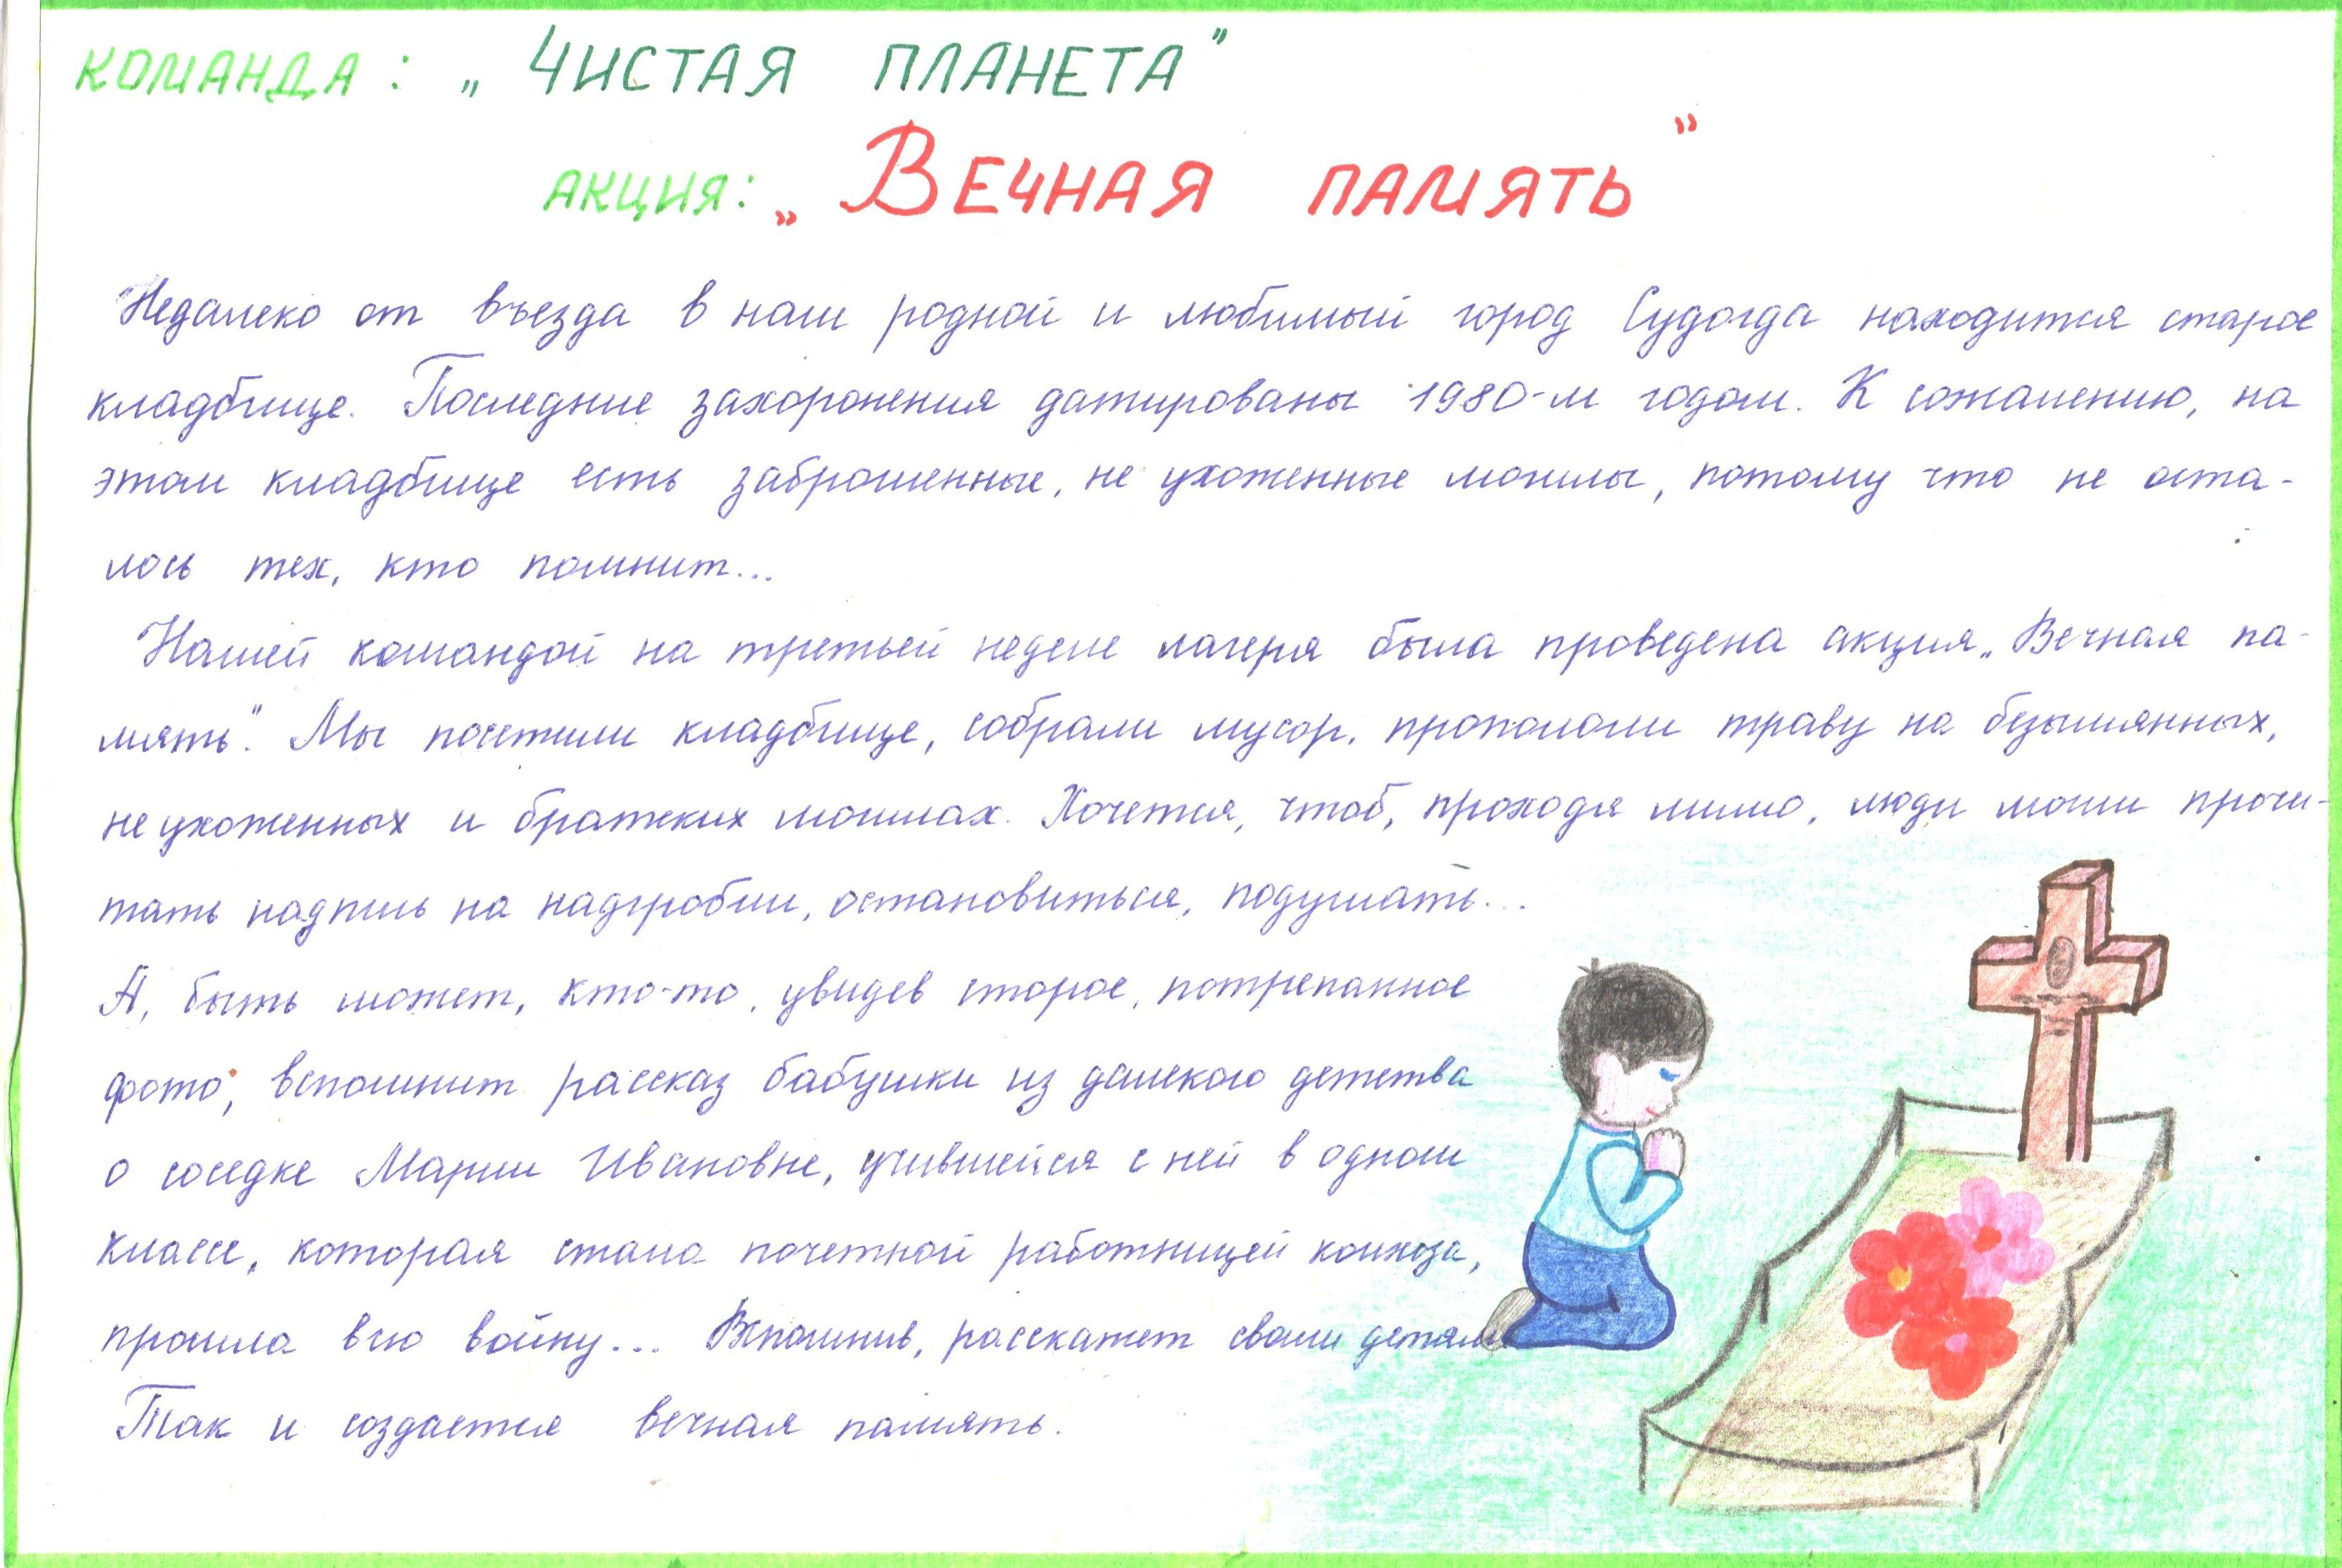 КОМАНДА: „ЧИСТАЯ ПЛАНЕТА”
АКЦИЯ: „ВЕЧНАЯ ПАМЯТЬ”
Недалеко от въезда в наш родной и любимый город Судогда находится старое
кладбище. Последние захоронения датированы 1980-м годом. К сожалению, на
этом кладбище есть заброшенные, не ухоженные могилы, потому что не оста-
лось тех, кто помнит...
Нашей командой на третьей неделе лагеря была проведена акция „Вечная па-
мять”. Мы посетили кладбище, собрали мусор, пропололи траву на безымянных,
не ухоженных и братских могилах. Хочется, чтоб, проходя мимо, люди могли прочи-
тать надпись на надгробии, остановиться, подумать...
А, быть может, кто-то, увидев старое, потрепанное
фото, вспомнит рассказ бабушки из далекого детства
о соседке Марии Ивановне, учившейся с ней в одном
классе, которая стала почетной работницей колхоза,
прошла всю войну... Вспомнив, расскажет своим детям
Так и создается вечная память.